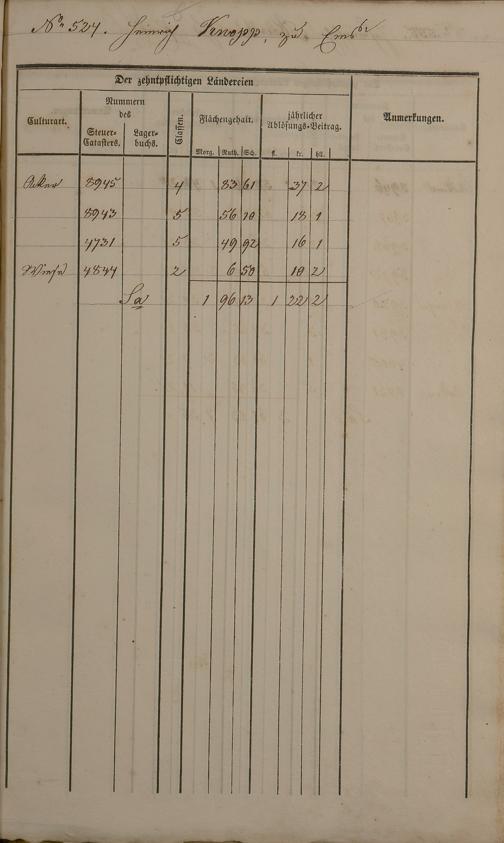 No. 524. Heinrich Knopp, zu Ems
Der zehntpflichtigen Ländereien
Culturart. Nummern des Steuer-Catasters. Lager-buchs. Classen. Flächengehalt. jährlicher Ablösungs-Beitrag. Anmerkungen.
Morg. Ruth. Sch. fl. kr. hll.
Acker 8945 4 83 61 37 2
8943 5 56 10 18 1
4731 5 49 92 16 1
Wiese 4844 2 6 50 10 2
Sa 1 96 13 1 22 2